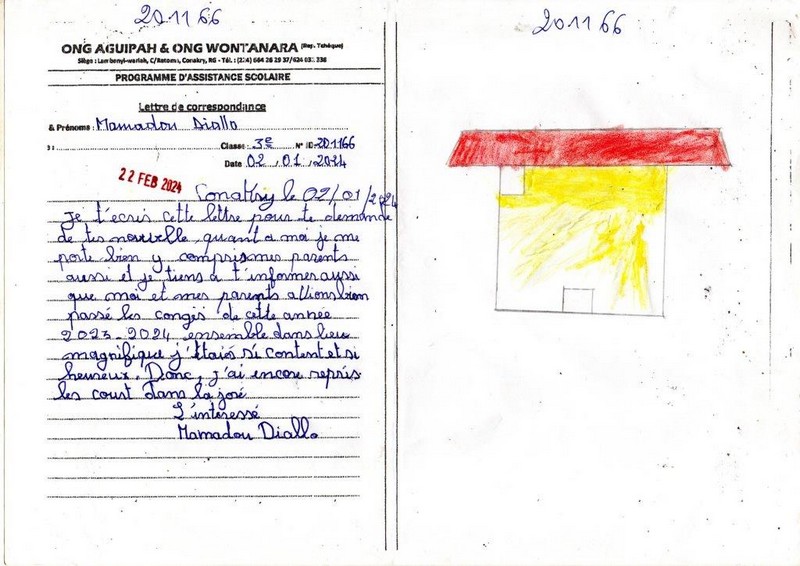 201166
ONG AGUIPAH & ONG WONTANARA (Rep. Tchèque)
Siège : Lambanyi-wariah, C/Ratoma, Conakry, RG - Tél. : (224) 664 26 29 37/624 03 336
PROGRAMME D'ASSISTANCE SCOLAIRE
Lettre de correspondance
& Prénoms : Mamadou Diallo
Classe : 3e N° ID 201166
Date 02 , 01 , 2024
22 FEB 2024
Conakry le 02/01/2024
Je t'ecris cette lettre pour te demande
de tes nouvelle, quant a moi je me
porte bien y compris mes parents
aussi et je tiens à t'informer aussi
que moi et mes parents allions bien
passé les congés de cette année
2023-2024 ensemble dans lieu
magnifique j'étais si content et si
heureux. Donc, j'ai encore repris
les court dans la joré
L'intéressé
Mamadou Diallo
201166